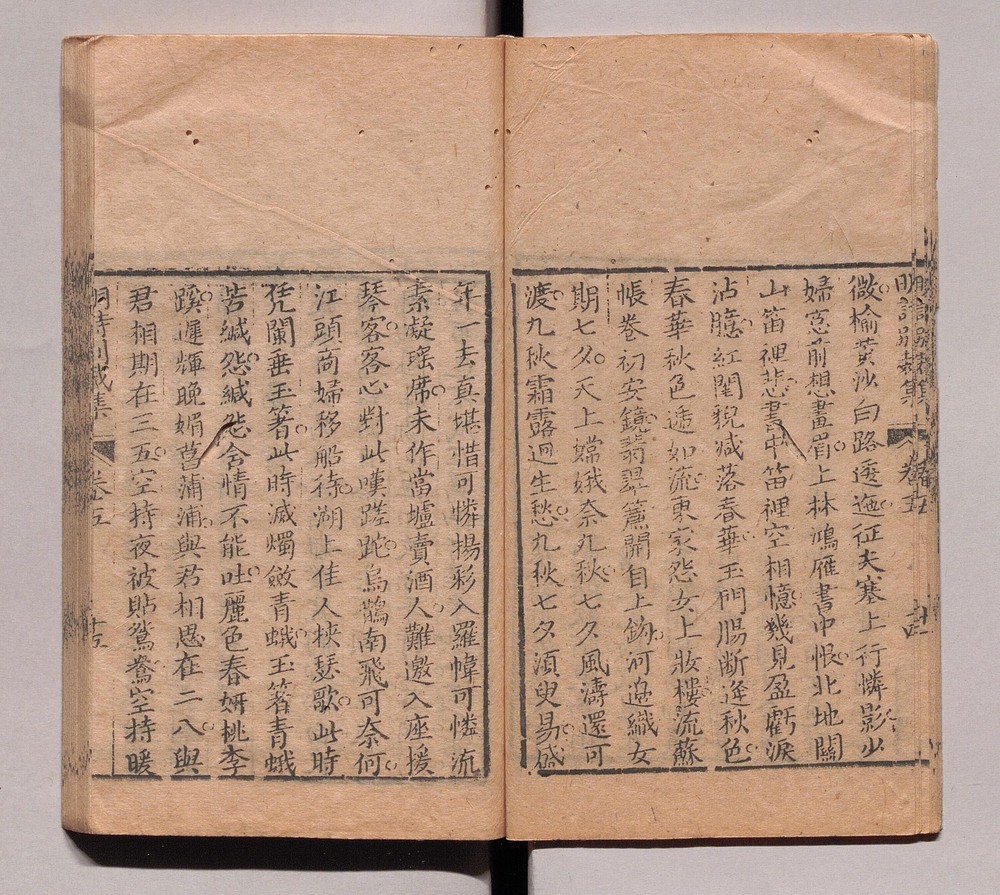 明詩別裁集 卷五 十四
微榆黃沙白路逶迤征夫塞上行憐影少
婦窓前想畫眉上林鴻雁書中恨北地關
山笛裡悲書中笛裡空相憶幾見盈虧淚
沾臆紅閨貌減落春華玉門腸斷逢秋色
春華秋色遞如流東家怨女上妝樓流蘇
帳卷初安鏡翡翠簾開自上鉤河邊織女
期七夕天上嫦娥奈九秋七夕風濤還可
渡九秋霜露迥生愁九秋七夕須臾易盛
年一去真堪惜可憐揚彩入羅幃可憐流
素凝瑤席未作當壚賣酒人難邀入座援
琴客客心對此嘆蹉跎烏鵲南飛可奈何
江頭商婦移船待湖上佳人挾瑟歌此時
凭闌垂玉箸此時滅燭斂青蛾玉箸青蛾
苦緘怨緘怨含情不能吐麗色春妍桃李
蹊遲輝晚媚菖蒲浦與君相思在二八與
君相期在三五空持夜被貼鴛鴦空持暖
明詩別裁集 卷五 十五